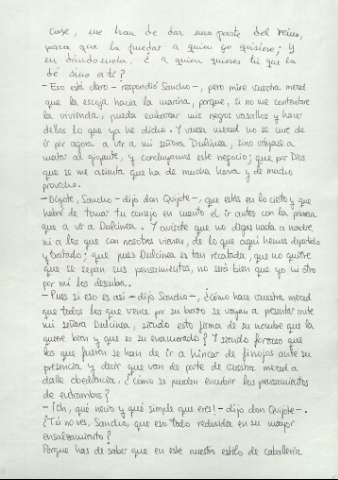 case, me han de dar una parte del reino,
para que la pueda dar a quien yo quisiere; y
en dándomela, ¿a quién quieres tú que la
dé sino a ti?
-Eso está claro -respondió Sancho-, pero mire vuestra merced
que la escoja hacia la marina, porque, si no me contentare
la vivienda, pueda embarcar mis negros vasallos y hacer
dellos lo que ya he dicho. Y vuesa merced no se cure de
ir por agora a ver a mi señora Dulcinea, sino váyase a
matar al gigante, y concluyamos este negocio; que por Dios
que se me asienta que ha de mucha honra y de mucho
provecho.
-Dígote, Sancho -dijo don Quijote-, que estás en lo cierto y que
habré de tomar tu consejo en cuanto el ir antes con la princesa
que a ver a Dulcinea. Y avísote que no digas nada a nadie,
ni a los que con nosotros vienen, de lo que aquí hemos departido
y tratado; que pues Dulcinea es tan recatada, que no quiere
que se sepan sus pensamientos, no será bien que yo ni otro
por mí los descubra.
-Pues si eso es así -dijo Sancho-, ¿cómo hace vuestra merced
que todos los que vence por su brazo se vayan a presentar ante
mi señora Dulcinea, siendo esto firma de su nombre que la
quiere bien y que es su enamorado? Y siendo forzoso que
los que fueren se han de ir a hincar de finojos ante su
presencia y decir que van de parte de vuestra merced a
dalle obediencia, ¿cómo se pueden encubrir los pensamientos
de entrambos?
-¡Oh, qué necio y qué simple que eres! -dijo don Quijote-.
¿Tú no ves, Sancho, que eso todo redunda en su mayor
ensalzamiento?
Porque has de saber que en este nuestro estilo de caballería